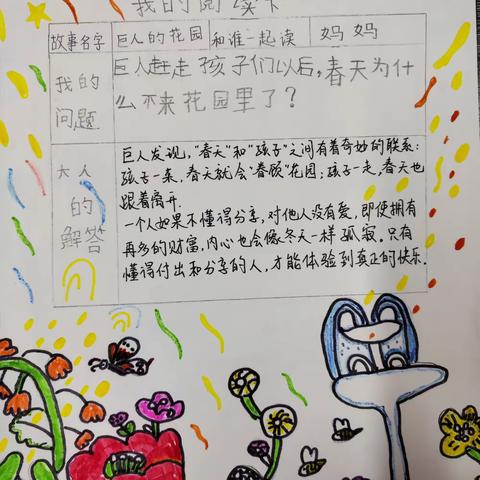 我的阅读卡
故事名字 巨人的花园 和谁一起读 妈妈
我的问题 巨人赶走孩子们以后，春天为什
么不来花园里了？
大人的解答 巨人发现，“春天”和“孩子”之间有着奇妙的联系：
孩子一来，春天就会“眷顾”花园；孩子一走，春天也
跟着离开。
一个人如果不懂得分享，对他人没有爱，即使拥有
再多的财富，内心也会像冬天一样孤寂。只有
懂得付出和分享的人，才能体验到真正的快乐。